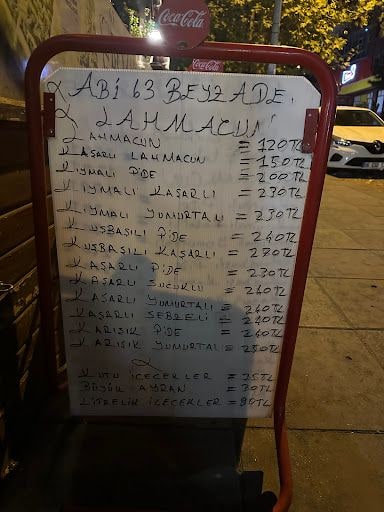 Coca-Cola
Coca-Cola
ABİ 63 BEYZADE.
LAHMACUN
LAHMACUN = 120TL
KAŞARLI LAHMACUN = 150TL
KIYMALI PİDE = 200TL
KIYMALI KAŞARLI = 230TL
KIYMALI YUMURTALI = 230TL
KUŞBAŞILI PİDE = 240TL
KUŞBAŞILI KAŞARLI = 270TL
KAŞARLI PİDE = 230TL
KAŞARLI SUCUKLU = 240TL
KAŞARLI YUMURTALI = 240TL
KAŞARLI SEBZELİ = 240TL
KARIŞIK PİDE = 240TL
KARIŞIK YUMURTALI = 250TL
KUTU İCECEKLER = 35TL
BÜYÜK AYRAN = 30TL
LİTRELİK İCECEKLER =